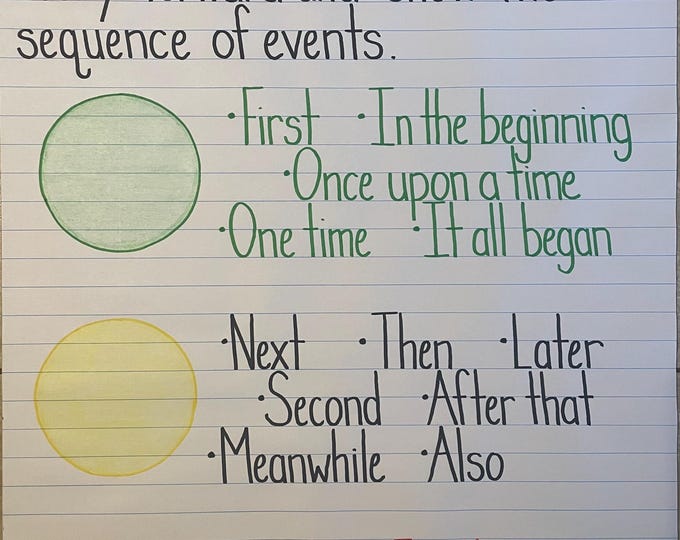 sequence of events.
•First •In the beginning
•Once upon a time
•One time •It all began
•Next •Then •Later
•Second •After that
•Meanwhile •Also